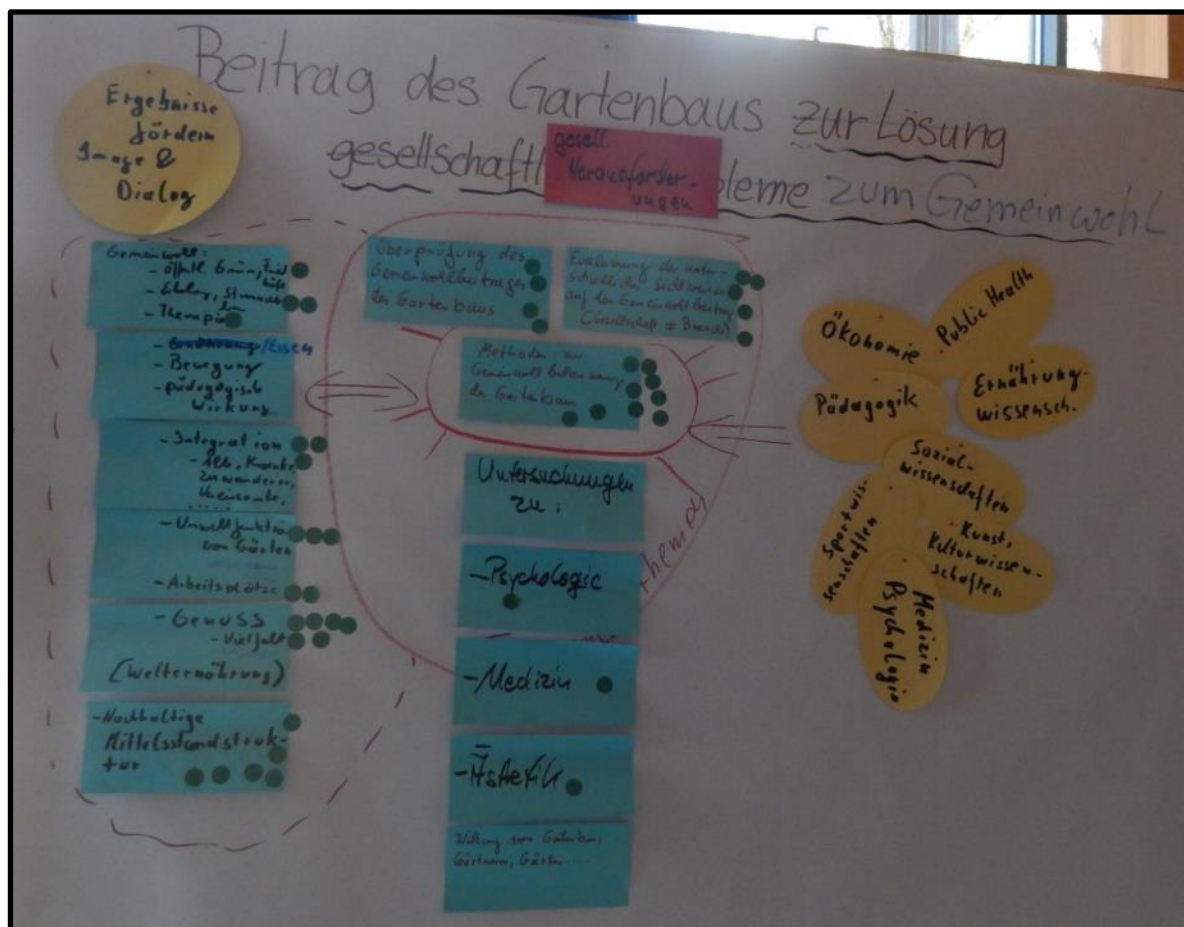 Beitrag des Gartenbaus zur Lösung
gesellschaftl
gesell.
Herausforder-
ungen
bleme zum Gemeinwohl
Ergebnisse
fördern
Image &
Dialog
Gemeinwohl:
- öffentl. Grün,
-
- Therapie
/Essen
- Bewegung
- pädagogisch
Wirkung
- Integration
- Alte, Kranke,
Zuwanderer,
Vereinsamte,
- Umweltfunktion
von Gärten
- Arbeitsplätze
- Genuss
- Vielfalt
(Welternährung)
- Nachhaltige
Mittelsstandstruk-
tur
Überprüfung des
Gemeinwohlbeitrages
des Gartenbaus
der unter-
schiedlichen Sichtweisen
auf den Gemeinwohlbeitrag
(Gesellschaft ≠ Branche)
Methoden zur
Gemeinwohl
des Gartenbaus
Untersuchungen
zu:
- Psychologie
- Medizin
- Ästetik
Wirkung von Gartenbau,
Gärtnern, Gärten.....
Ökonomie
Public Health
Pädagogik
Ernährung-
wissensch.
Sozial-
wissenschaften
Sportwis-
senschaften
Kunst,
Kulturwissen-
schaften
Medizin
Psychologie